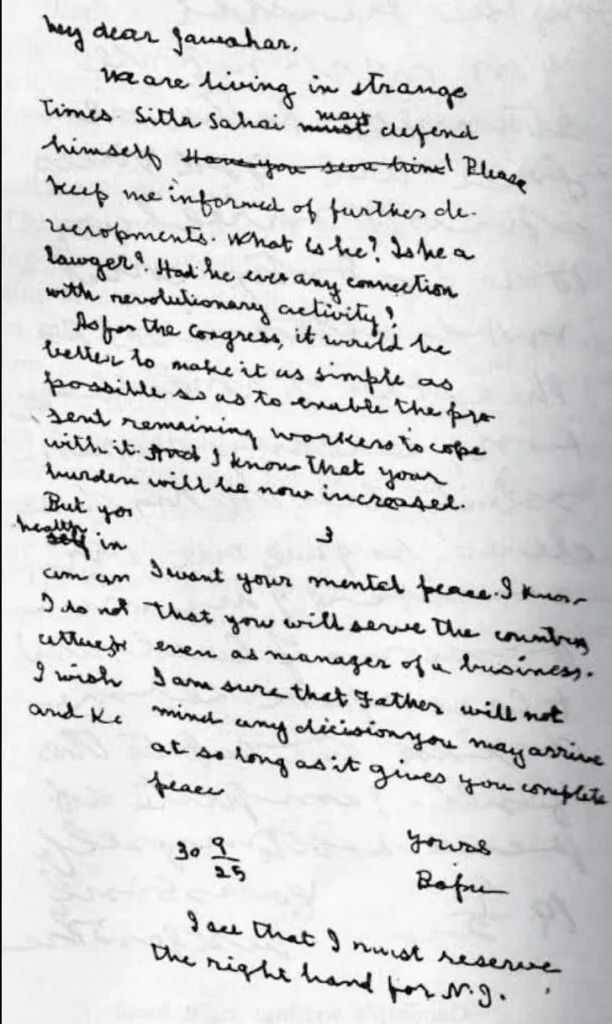 My dear Jawahar,
We are living in strange
times Sitla Sahai must may defend
himself Have you seen him! Please
keep me informed of further de-
velopments. What is he? Is he a
lawyer? Had he ever any connection
with revolutionary activity?
As for the Congress, it would be
better to make it as simple as
possible so as to enable the pre
sent remaining workers to cope
with it. And I know that your
burden will be now increased.
But yo
health
self in
am an
I do not
I wish
and Ke
3
I want your mental peace. I know
that you will serve the country
even as manager of a business.
I am sure that Father will not
mind any decision you may arrive
at so long as it gives you complete
peace
30 9/25
Yours
Bapu
I see that I must reserve
the right hand for N.J.